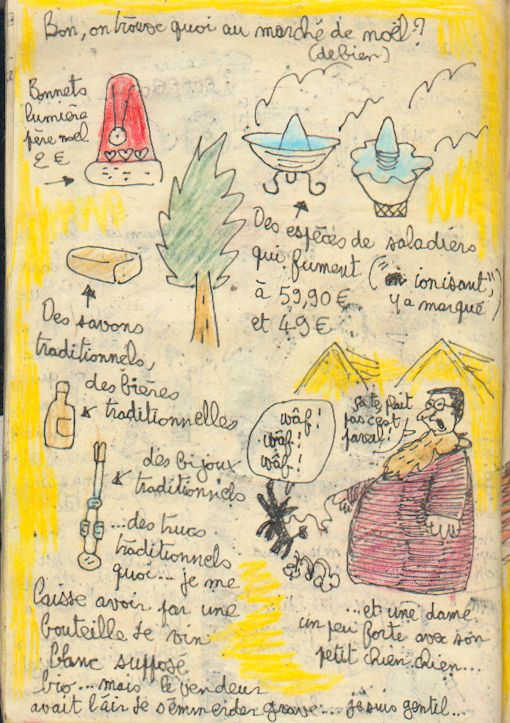 Bon, on trouve quoi au marché de noël?
(de bien)
Bonnets
lumière
père noel
2 €
Des espèces de saladiers
qui fument
("ionisant",
y a marqué)
à 59,90 €
et 49 €
Des savons
traditionnels,
des bières
traditionnelles
des bijoux
traditionnels
...des trucs
traditionnels
quoi... je me
laisse avoir par une
bouteille de vin
blanc supposé
bio... mais le vendeur
avait l'air de s'emmerder grave... je suis gentil...
wåf!
wåf!
wåf!
ça te fait
pas c'est
pareil!
...et une dame
un peu forte avec son
petit chien chien...